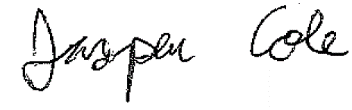 Jasper Cole